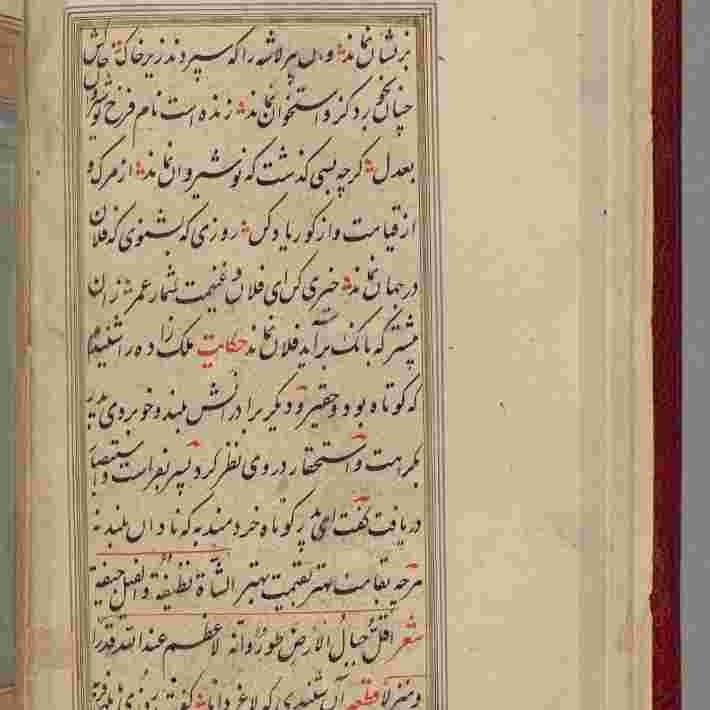 بر نشان نماند وان پیر لاشه را که سپردند زیر خاک خاکش
چنان بخورد کزو استخوان نماند زنده است نام فرخ نوشیروان
بعدل کرچه بسی کذشت که نوشیروان نماند از مرک و
از قیامت و از کور یاد کن روزی که بشنوی که فلان
در جهان نماند خیری کن ای فلان و غنیمت شمار عمر زان
پیشتر که بانک برآید فلان نماند حکایت ملک زاده را شنیدم
که کوتاه بود و حقیر و دیکر برادرانش بلند و خوبروی پدر
بکراهت و استحقار در وی نظر کرد پسر بفراست و استبصار
دریافت کفت ای پدر کوتاه خردمند به که نادان بلند نه
هرچه بقامت مهتر بقیمت بهتر الشاة نظیفة والفیل جیفة
شعر اقل جبال الارض طور وانه لاعظم عند الله قدرا
ومنزلا قطعه آن شنیدی که لاغر دانا کفت روزی